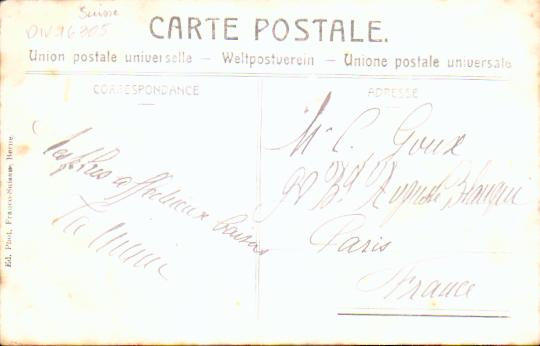 Suisse
DIV.16305
CARTE POSTALE.
Union postale universelle — Weltpostverein — Unione postale universale
CORRESPONDANCE
ADRESSE
Les plus affectueux baisers
Ta
Mr C. Goux
90 Bd Auguste Blanqui
Paris
France
Ed. Phot. Franco-Suisse, Berne.